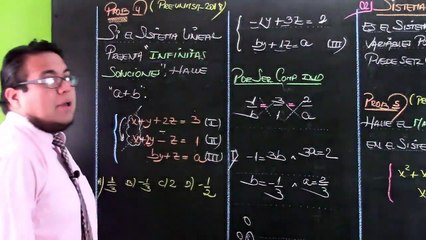 PROB 4) (PREUNMSM-2018)
SI EL SISTEMA LINEAL
PRESENTA "INFINITAS
SOLUCIONES", HALLE
"a+b".
x+y+2z=3 (I)
x+2y-z=1 (II)
by+z=a (III)
A) 1/3 B) -1/3 C) 2 D) -1/2
-2y+3z=2
by+1z=a (III)
POR SER COMP IND
-1/b = 3/1 = 2/a
-1=3b ∧ 3a=2
b=-1/3 ∧ a=2/3
02) SISTEMA
ES EL SISTEMA
VARIABLE
PUEDE SER
PROB 5
HALLE EL
EN EL SISTE
x²+
x